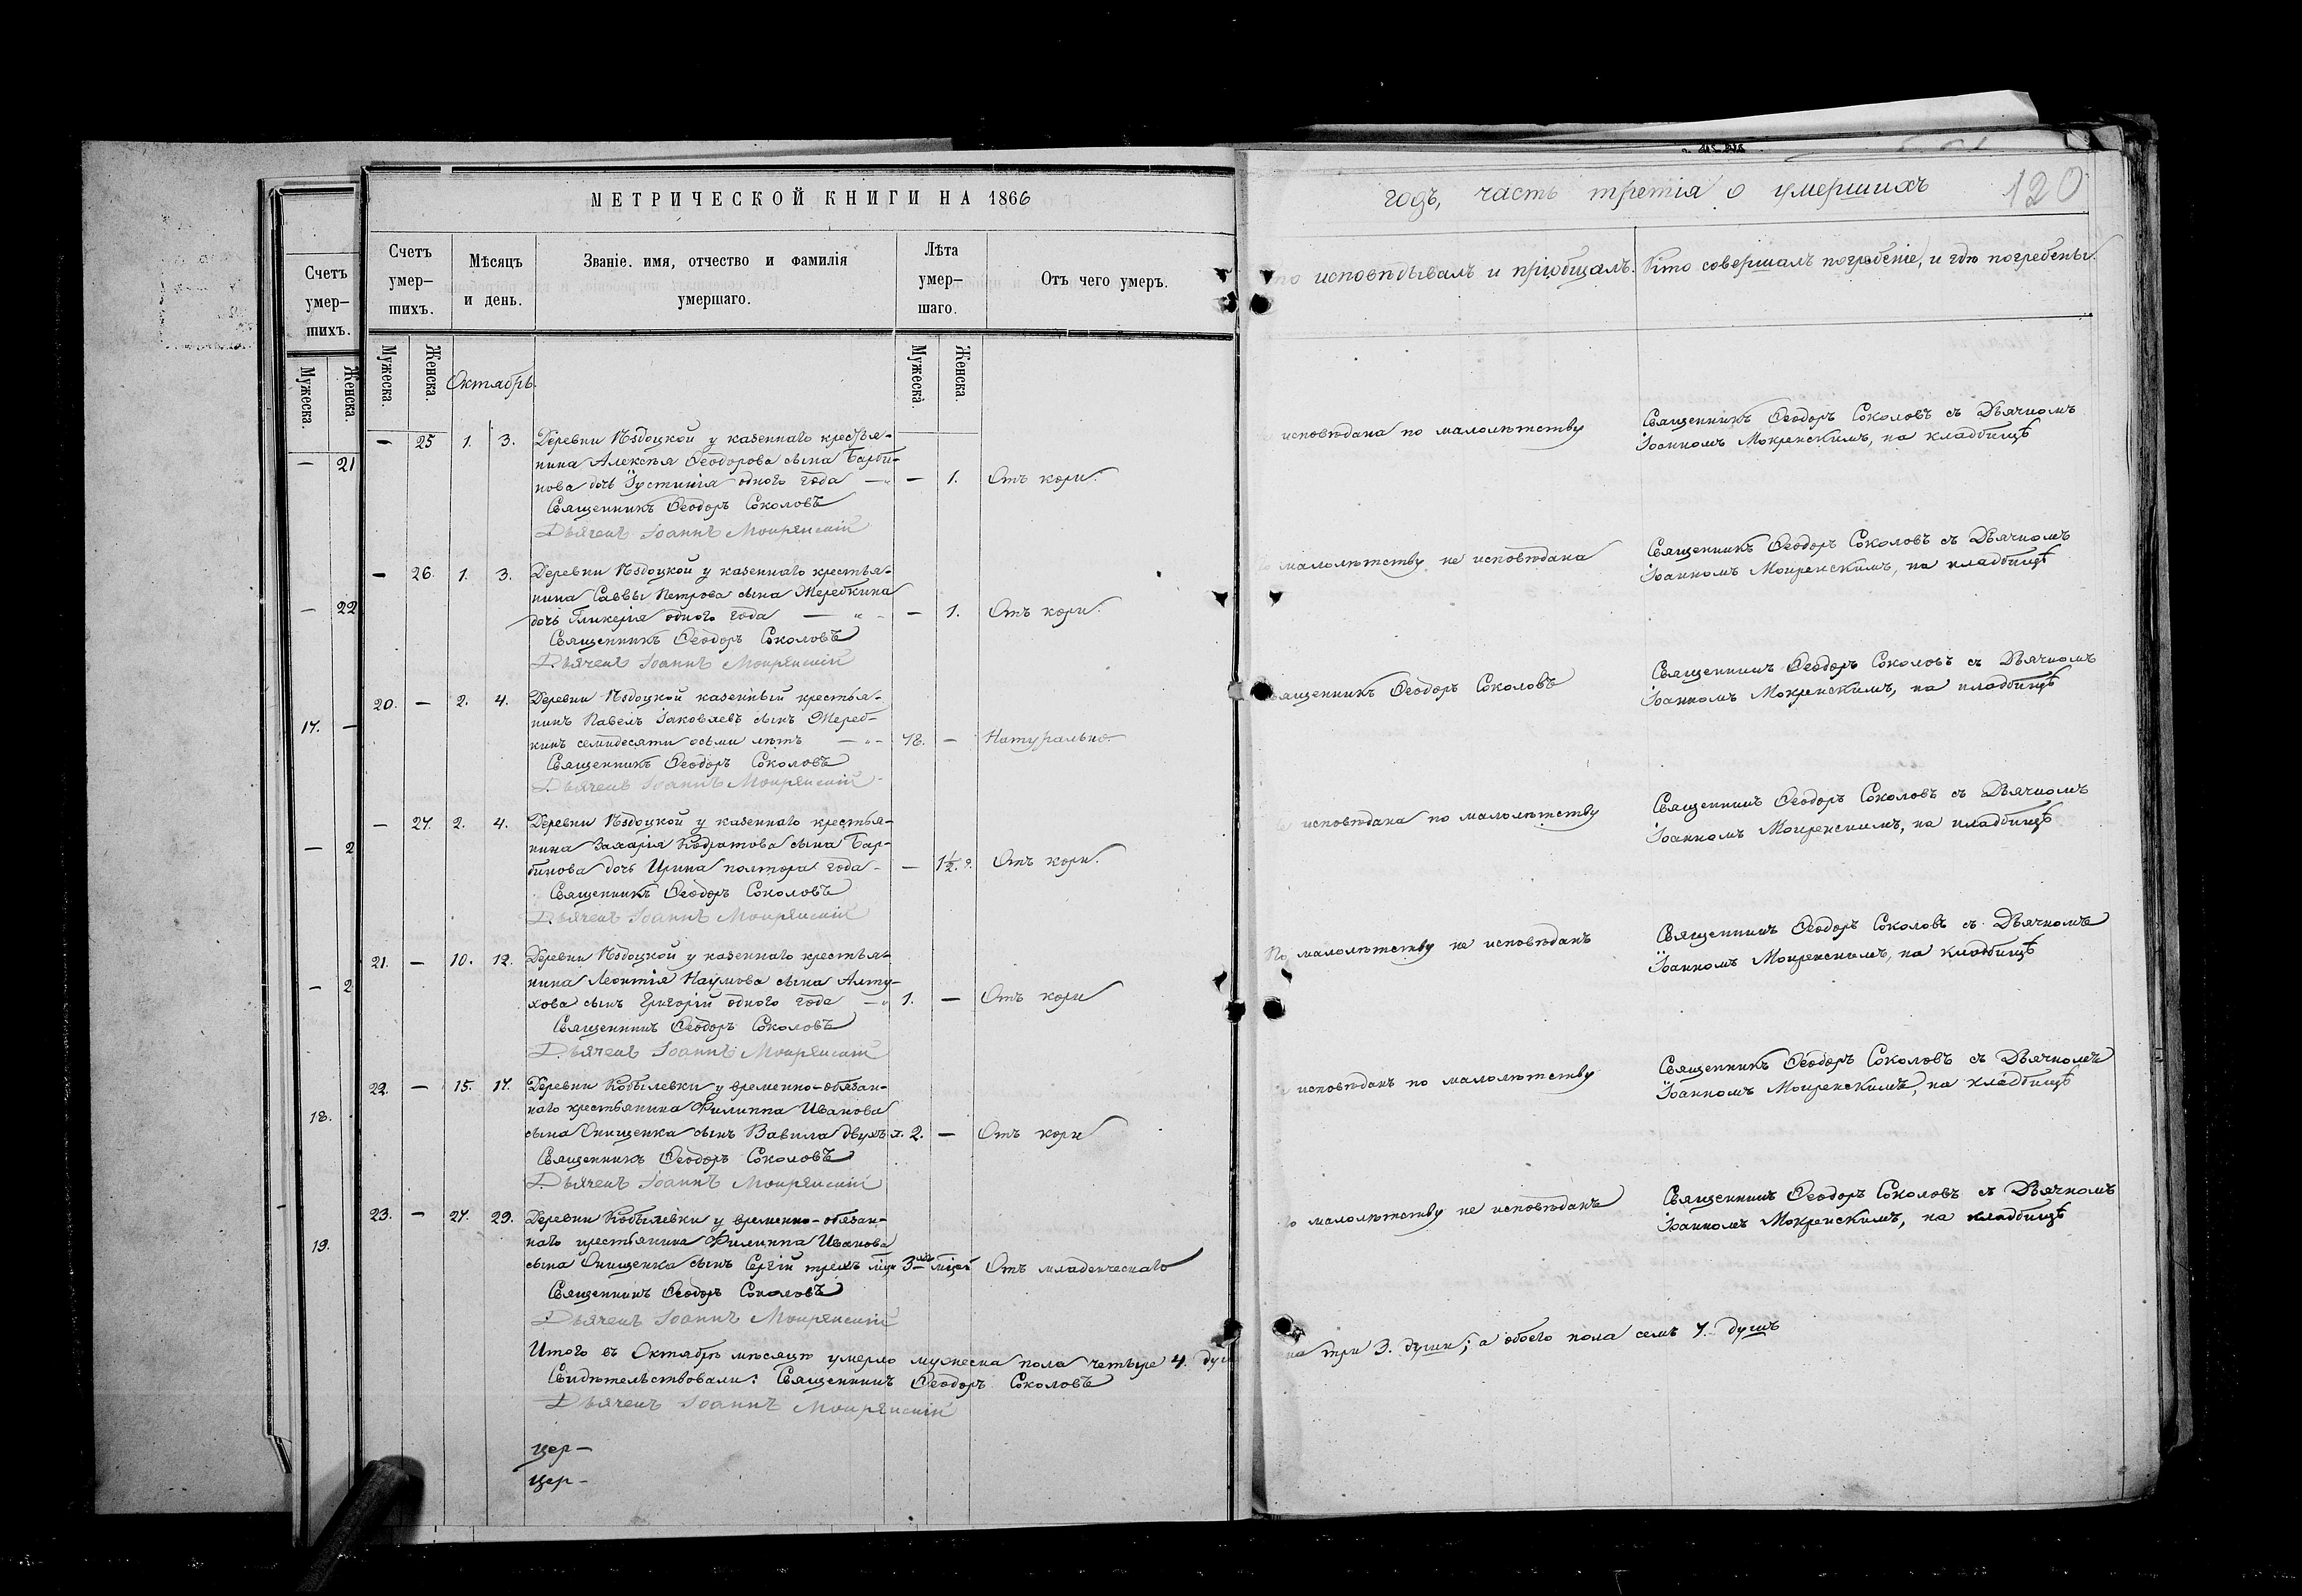 МЕТРИЧЕСКОЙ КНИГИ НА 1866
годъ, часть третія о умершихъ
120
Счетъ умер-шихъ.
Мужеска.
Женска.
21
22
17. —
— 2
— 2
18.
19.
Счетъ умер-шихъ.
Мѣсяцъ и день.
Званіе. имя, отчество и фамилія умершаго.
Лѣта умер-шаго.
Отъ чего умеръ.
исповѣдывалъ и пріобщалъ.
Кто совершалъ погребеніе, и гдѣ погребены.
Мужеска.
Женска.
Октябрь.
Мужеска.
Женска.
— 25 1. 3. Деревни Нздоцкой у казеннаго крестья-
нина Алексѣя Ѳеодорова сына Барби-
нова дочь Іустинія одного года — 1. Отъ кори.
Священникъ Ѳеодоръ Соколовъ
Дьячекъ Іоаннъ Мокренскій
исповѣдана по малолѣтству
Священникъ Ѳеодоръ Соколовъ съ Дьячкомъ
Іоанномъ Мокренскимъ, на кладбищѣ
— 26. 1. 3. Деревни Нздоцкой у казеннаго крестья-
нина Саввы Петрова сына Жеребкина
дочь Гликерія одного года — 1. Отъ кори.
Священникъ Ѳеодоръ Соколовъ
Дьячекъ Іоаннъ Мокренскій
малолѣтству не исповѣдана
Священникъ Ѳеодоръ Соколовъ съ Дьячкомъ
Іоанномъ Мокренскимъ, на кладбищѣ
20. — 2. 4. Деревни Нздоцкой казенный крестья-
нинъ Павелъ Іаковлевъ сынъ Жереб-
кинъ семидесяти осьми лѣтъ 78. — Натурально.
Священникъ Ѳеодоръ Соколовъ
Дьячекъ Іоаннъ Мокренскій
Священникъ Ѳеодоръ Соколовъ
Священникъ Ѳеодоръ Соколовъ съ Дьячкомъ
Іоанномъ Мокренскимъ, на кладбищѣ
— 27. 2. 4. Деревни Нздоцкой у казеннаго крестья-
нина Захарія Кодратова сына Бар-
бинова дочь Ирина полтора года — 1½ г. Отъ кори.
Священникъ Ѳеодоръ Соколовъ
Дьячекъ Іоаннъ Мокренскій
исповѣдана по малолѣтству
Священникъ Ѳеодоръ Соколовъ съ Дьячкомъ
Іоанномъ Мокренскимъ, на кладбищѣ
21. — 10. 12. Деревни Нздоцкой у казеннаго крестья-
нина Леонтія Наумова сына Алту-
хова сынъ Григорій одного года 1. — Отъ кори
Священникъ Ѳеодоръ Соколовъ
Дьячекъ Іоаннъ Мокренскій
По малолѣтству не исповѣданъ
Священникъ Ѳеодоръ Соколовъ съ Дьячкомъ
Іоанномъ Мокренскимъ, на кладбищѣ
22. — 15. 17. Деревни Кобылевки у временно-обязан-
наго крестьянина Филиппа Иванова
сына Онищенка сынъ Вавила двухъ л. 2. — Отъ кори
Священникъ Ѳеодоръ Соколовъ
Дьячекъ Іоаннъ Мокренскій
исповѣданъ по малолѣтству
Священникъ Ѳеодоръ Соколовъ съ Дьячкомъ
Іоанномъ Мокренскимъ, на кладбищѣ
23. — 27. 29. Деревни Кобылевки у временно-обязан-
наго крестьянина Филиппа Иванова
сына Онищенка сынъ Сергій трехъ 3 Отъ младенческаго
Священникъ Ѳеодоръ Соколовъ
Дьячекъ Іоаннъ Мокренскій
малолѣтству не исповѣданъ
Священникъ Ѳеодоръ Соколовъ съ Дьячкомъ
Іоанномъ Мокренскимъ, на кладбищѣ
Итого въ Октябрѣ мѣсяцѣ умерло мужеска пола четыре 4. душ
три 3. души; а обоего пола семь 7. душъ
Свидѣтельствовали: Священникъ Ѳеодоръ Соколовъ
Дьячекъ Іоаннъ Мокренскій
цер-
цер-